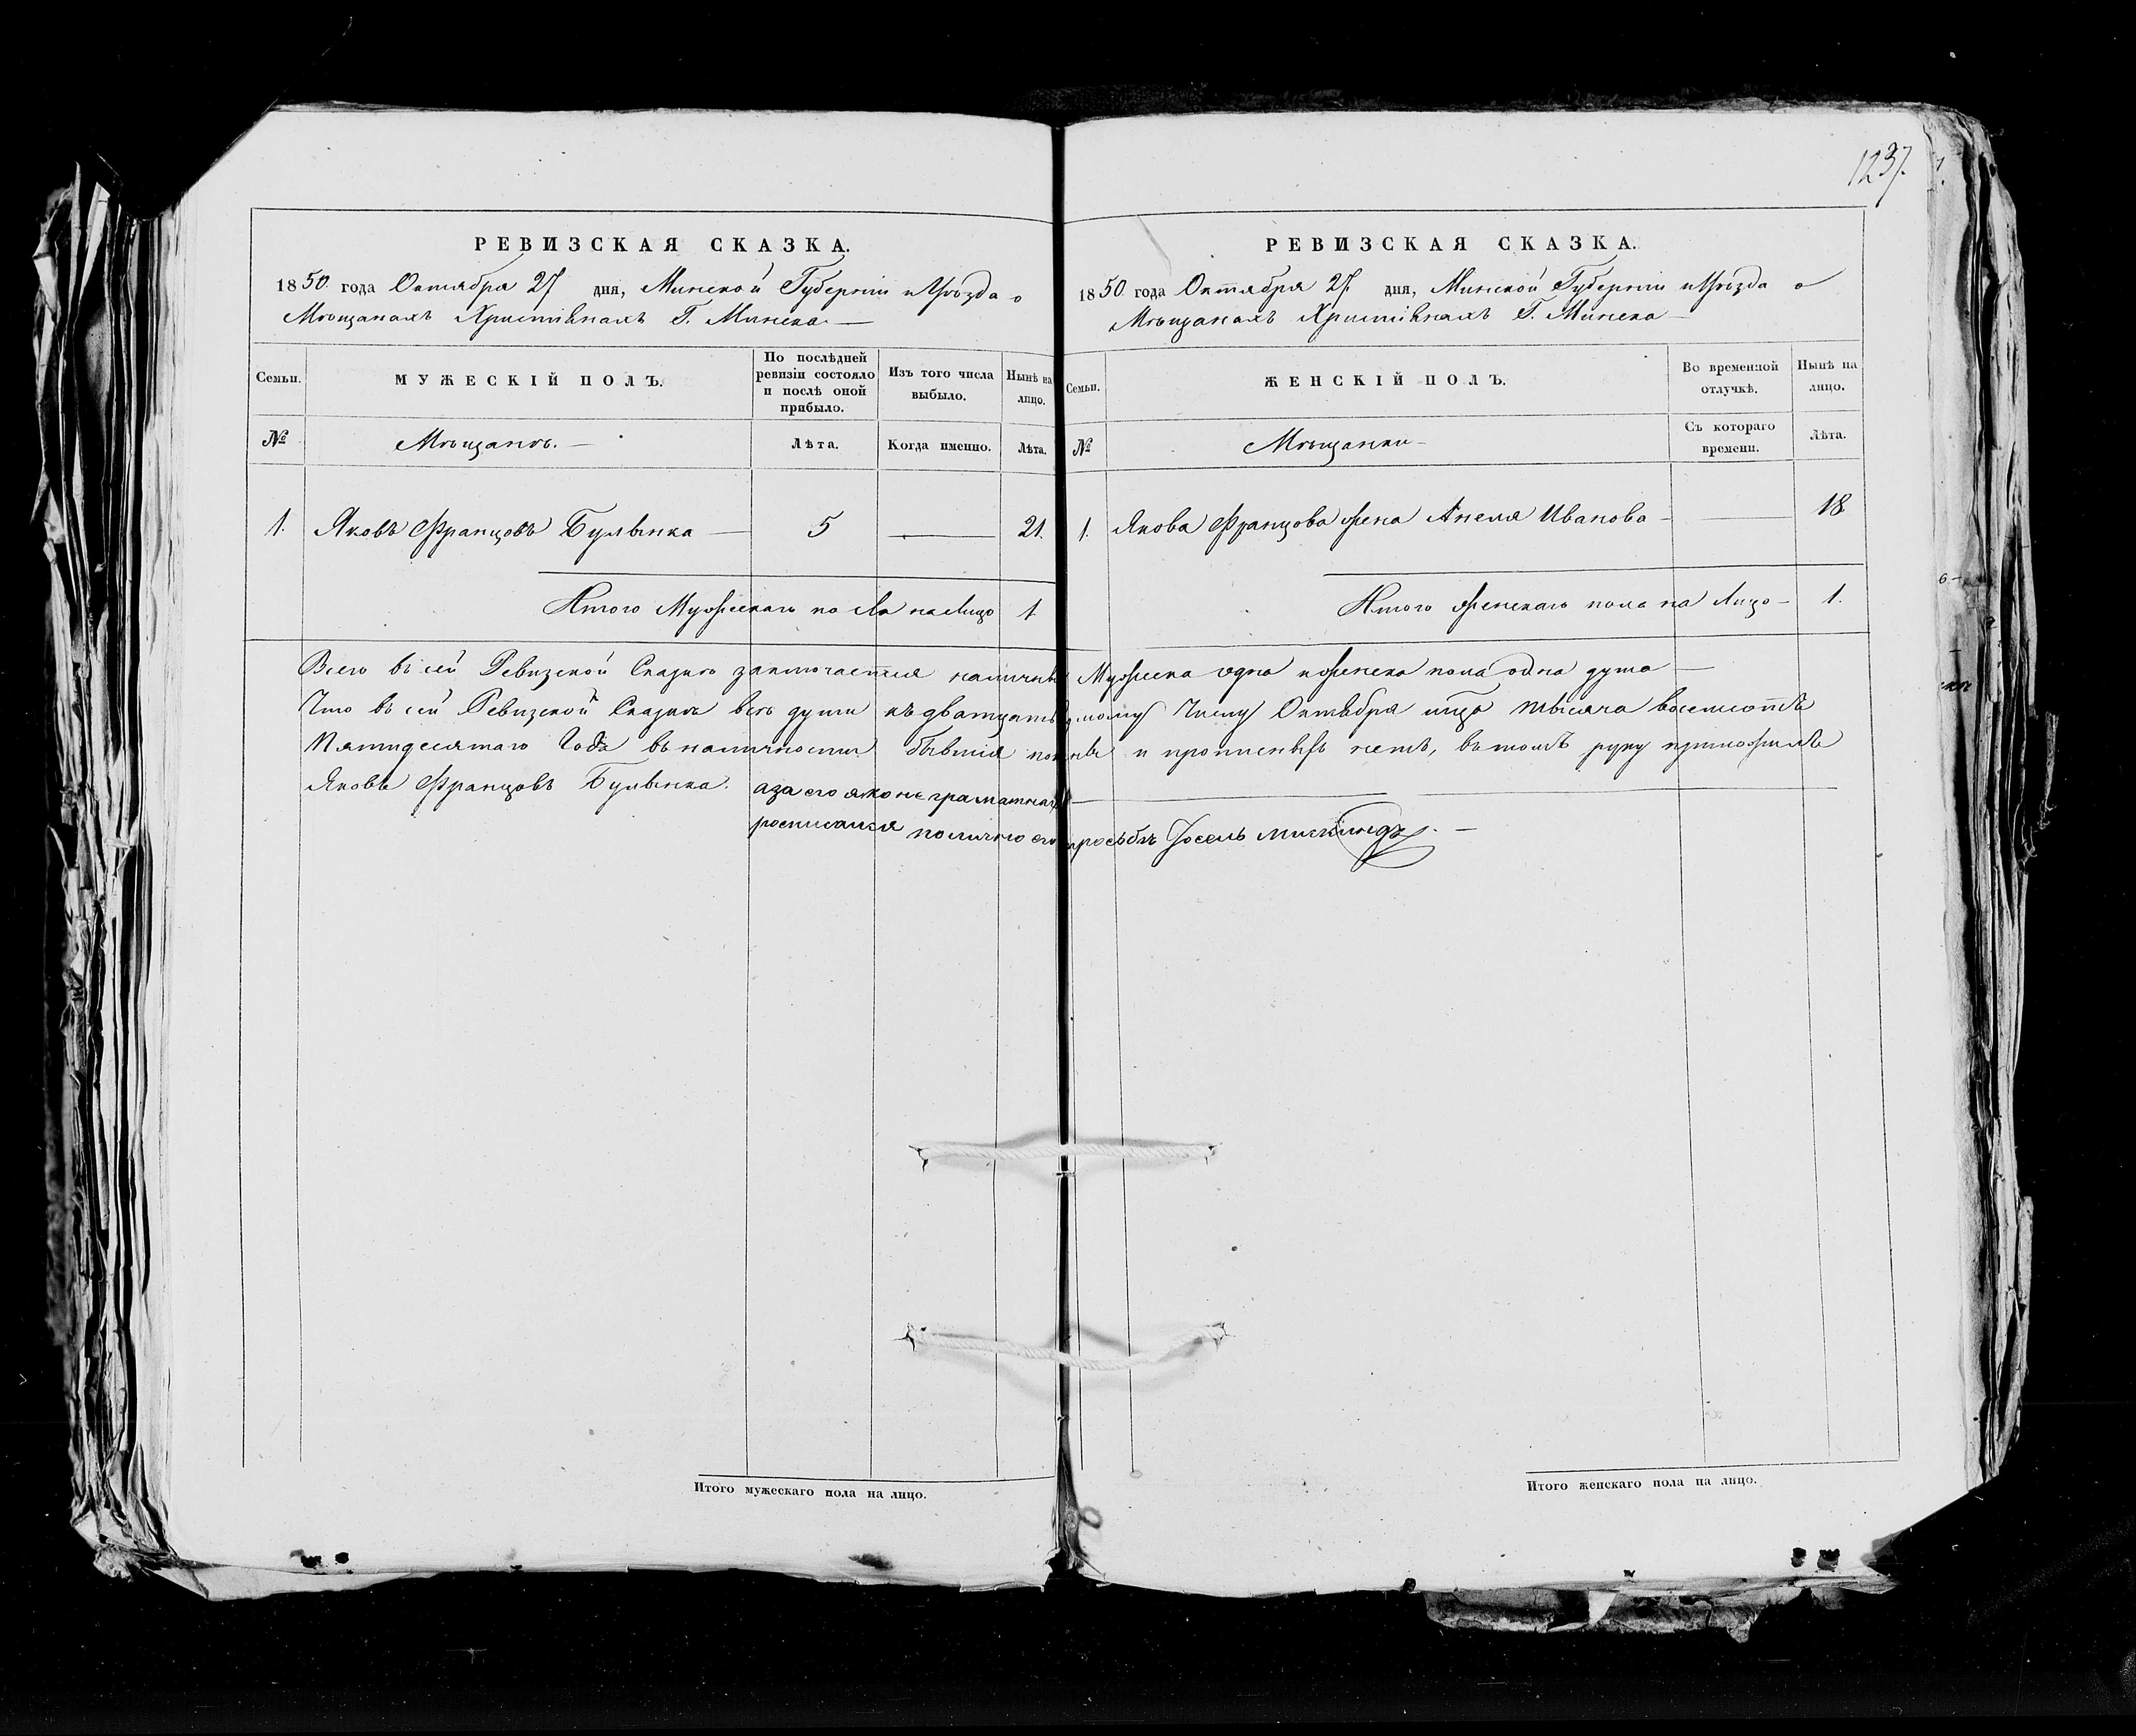 1237.
РЕВИЗСКАЯ СКАЗКА.
1850 года Октября 27 дня, Минской Губерніи и Уѣзда о
Мѣщанахъ Христіянахъ Г. Минска —
Семьи.
МУЖЕСКІЙ ПОЛЪ.
По послѣдней ревизіи состояло и послѣ оной прибыло.
Изъ того числа выбыло.
Нынѣ на лицо.
№
Мѣщанъ. —
Лѣта.
Когда именно.
Лѣта.
1. Яковъ Францовъ Булынка — 5 — 21.
Итого Мужескаго пола на Лицо 1
РЕВИЗСКАЯ СКАЗКА.
1850 года Октября 27 дня, Минской Губерніи и Уѣзда о
Мѣщанахъ Христіянахъ Г. Минска —
Семьи.
ЖЕНСКІЙ ПОЛЪ.
Во временной отлучкѣ.
Нынѣ на лицо.
№
Мѣщанки —
Съ котораго времени.
Лѣта.
1. Якова Францова жена Анеля Иванова — — 18
Итого женскаго пола на Лицо — 1.
Всего въ сей Ревизской Сказкѣ заключается Мужеска одна и женска пола одна душа —
Что въ сей Ревизской Сказкѣ всѣ души къ двадцать Числу Октября тысяча восемсотъ
Пятидесятаго Года въ наличности бывшія и прописныхъ нетъ, въ томъ руку приложилъ
Яковъ Францовъ Булынка. а за его яко не граматнаго —
росписался по личной его просьбѣ Іосель
Итого мужескаго пола на лицо.
Итого женскаго пола на лицо.